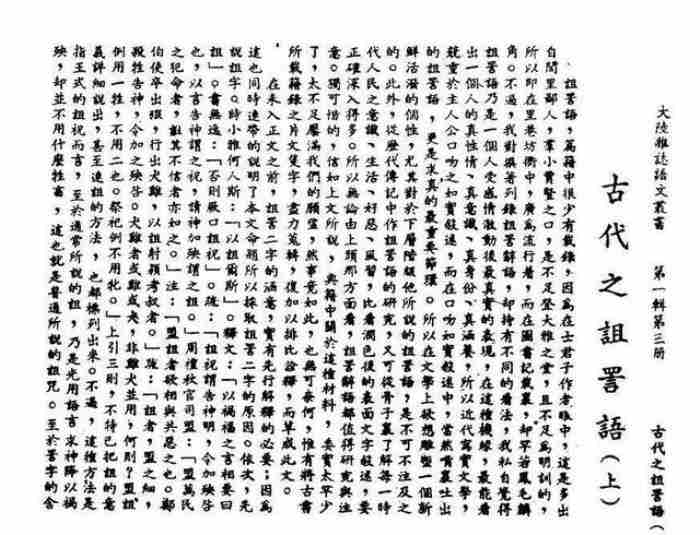 大陸雜誌語文叢書　第一輯第三冊　古代之詛詈語(
古代之詛詈語(上)
詛詈語，舊籍中很少有載錄，因為在士君子作者眼中，這是多出
自閭里鄙人，羣小賣豎之口，是不足登大雅之堂，且不足為明訓的，
所以即在里巷坊衢中，廣為流行着，而在圖書記載裏，却罕若鳳毛麟
角。不過，我對撰著列錄詛詈辭語，却持有不同的看法，我私自覺得
詛詈語乃是一個人受感情激動後最真實的表現，在這種機緣，最能看
出一個人的真性情、真意識、真身份、真涵養，所以近代寫實文學，
競重於主人公口吻之如實敍述，而在口吻如實敍述中，當然實裏吐出
的詛詈語，更是求真的最重要節環。所以在文學上欲想雕塑一個新
鮮活潑的個性，尤其對於下層階級他所說的詛詈語，是不可不注及之
的。此外，從歷代傳記中作詛詈語的研究，又可從骨子裏了解每一時
代人民之意識、生活、好惡、風習，比看潤色後的表面文字敍述，要
正確深入得多。所以無論由上頭那方面看，詛詈辭語都值得研究與注
意。獨可惜的，信如上文所說，典籍中關於這種材料，委實太罕少
了，太不足饜滿我們的願望，然事竟如此，也無可奈何，惟有將古書
所載籍錄之片文隻字，盡力蒐輯，復加以排比詮釋，而草成此文。
在未入正文之前，詛詈二字的涵意，實有先行解釋的必要；因為
這也同時連帶的說明了本文命題所以採取詛詈二字的原因。依次，先
說詛字。詩小雅何人斯：「以詛爾斯」。釋文：「以禍福之言相要曰
詛」。書無逸：「否則厥口詛祝」。疏：「詛祝謂告神明，令加殃咎
也，以言告神謂之祝，請神加殃謂之詛。」周禮秋官司盟：「盟萬民
之犯命者，詛其不信者亦如之。」注：「盟詛者欲相與共惡之也。鄭
伯使卒出豭，行出犬雞，以詛射潁考叔者。」疏：「詛者，盟之細，
殺牲告神，令加之殃咎。犬雞者或雞或犬，非雞犬並用，何則？盟詛
例用一牲，不用二也。祭祀例不用牝。」上引三則，不特已把詛的意
義詳細說出，甚至連詛的方法，也都標列出來。不過，這種方法是
指正式的詛祝而言，至於通常所說的詛，乃是光用語言求神降以禍
殃，却並不用什麼牲畜，這也就是普通所說的詛咒。至於詈字的含